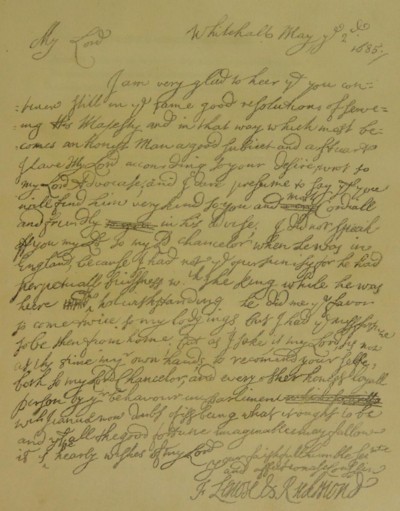 My Lord
Whitehall May ye 2d
1685/
I am very glad to hear yt you con-
:tinew still in ye same good resolutions of serve-
:ing His Majesty and in that way which most be-
comes an honest Man a good subject and a
I have My Lord according to your desire
my Lord Advocate, and I dare presume to say
find him very kind to you and most Cordiall
and friendly in his advise, I did not speak
of you myself to my Ld chancelor when he was in
England, because I had not ye opertunity for he had
perpetuall businesse wth the King while he was
here notwithstanding he did me ye favor
to come twice to my lodgings but I had ye misfortune
to be then from home, but as I take it my Lord is
at this time in your own hands to recomend your selfe
both to my Lord Chancelor, and every other honest loyall
person by yr behaviour in parliment
what ought to be
and yt all the good fortune imaginable may follow
it is ye hearty wishes of my Lord
your faithfull humble
and affectionate
F Lenox & Richmond